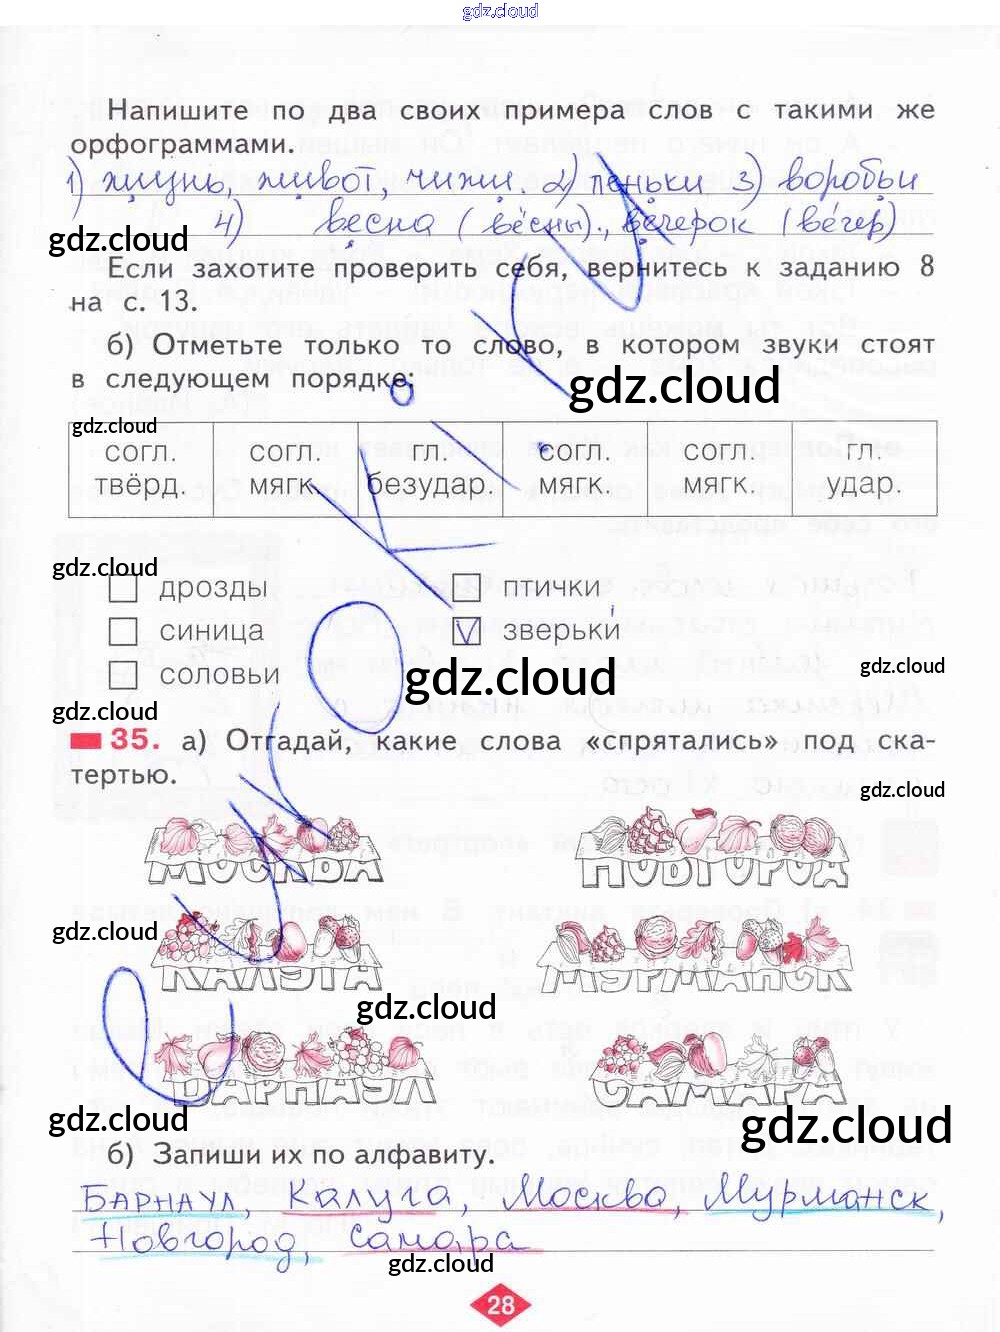 gdz.cloud
Напишите по два своих примера слов с такими же
орфограммами.
1) жизнь, живот, чижи. 2) пеньки 3) воробьи
4) весна (вёсны)., вечерок (ве́чер)
gdz.cloud
Если захотите проверить себя, вернитесь к заданию 8
на с. 13.
б) Отметьте только то слово, в котором звуки стоят
в следующем порядке:
gdz.cloud
gdz.cloud
согл. твёрд. согл. мягк. гл. безудар. согл. мягк. согл. мягк. гл. удар.
gdz.cloud gdz.cloud
дрозды птички
синица V зверьки́
соловьи
gdz.cloud gdz.cloud
gdz.cloud
35. а) Отгадай, какие слова «спрятались» под ска-
тертью.
gdz.cloud
МОСКВА НОВГОРОД
gdz.cloud
КАЛУГА МУРМАНСК
gdz.cloud
БАРНАУЛ САМАРА
gdz.cloud gdz.cloud
б) Запиши их по алфавиту.
Барнаул, Калуга, Москва, Мурманск,
Новгород, Самара
gdz.cloud
28